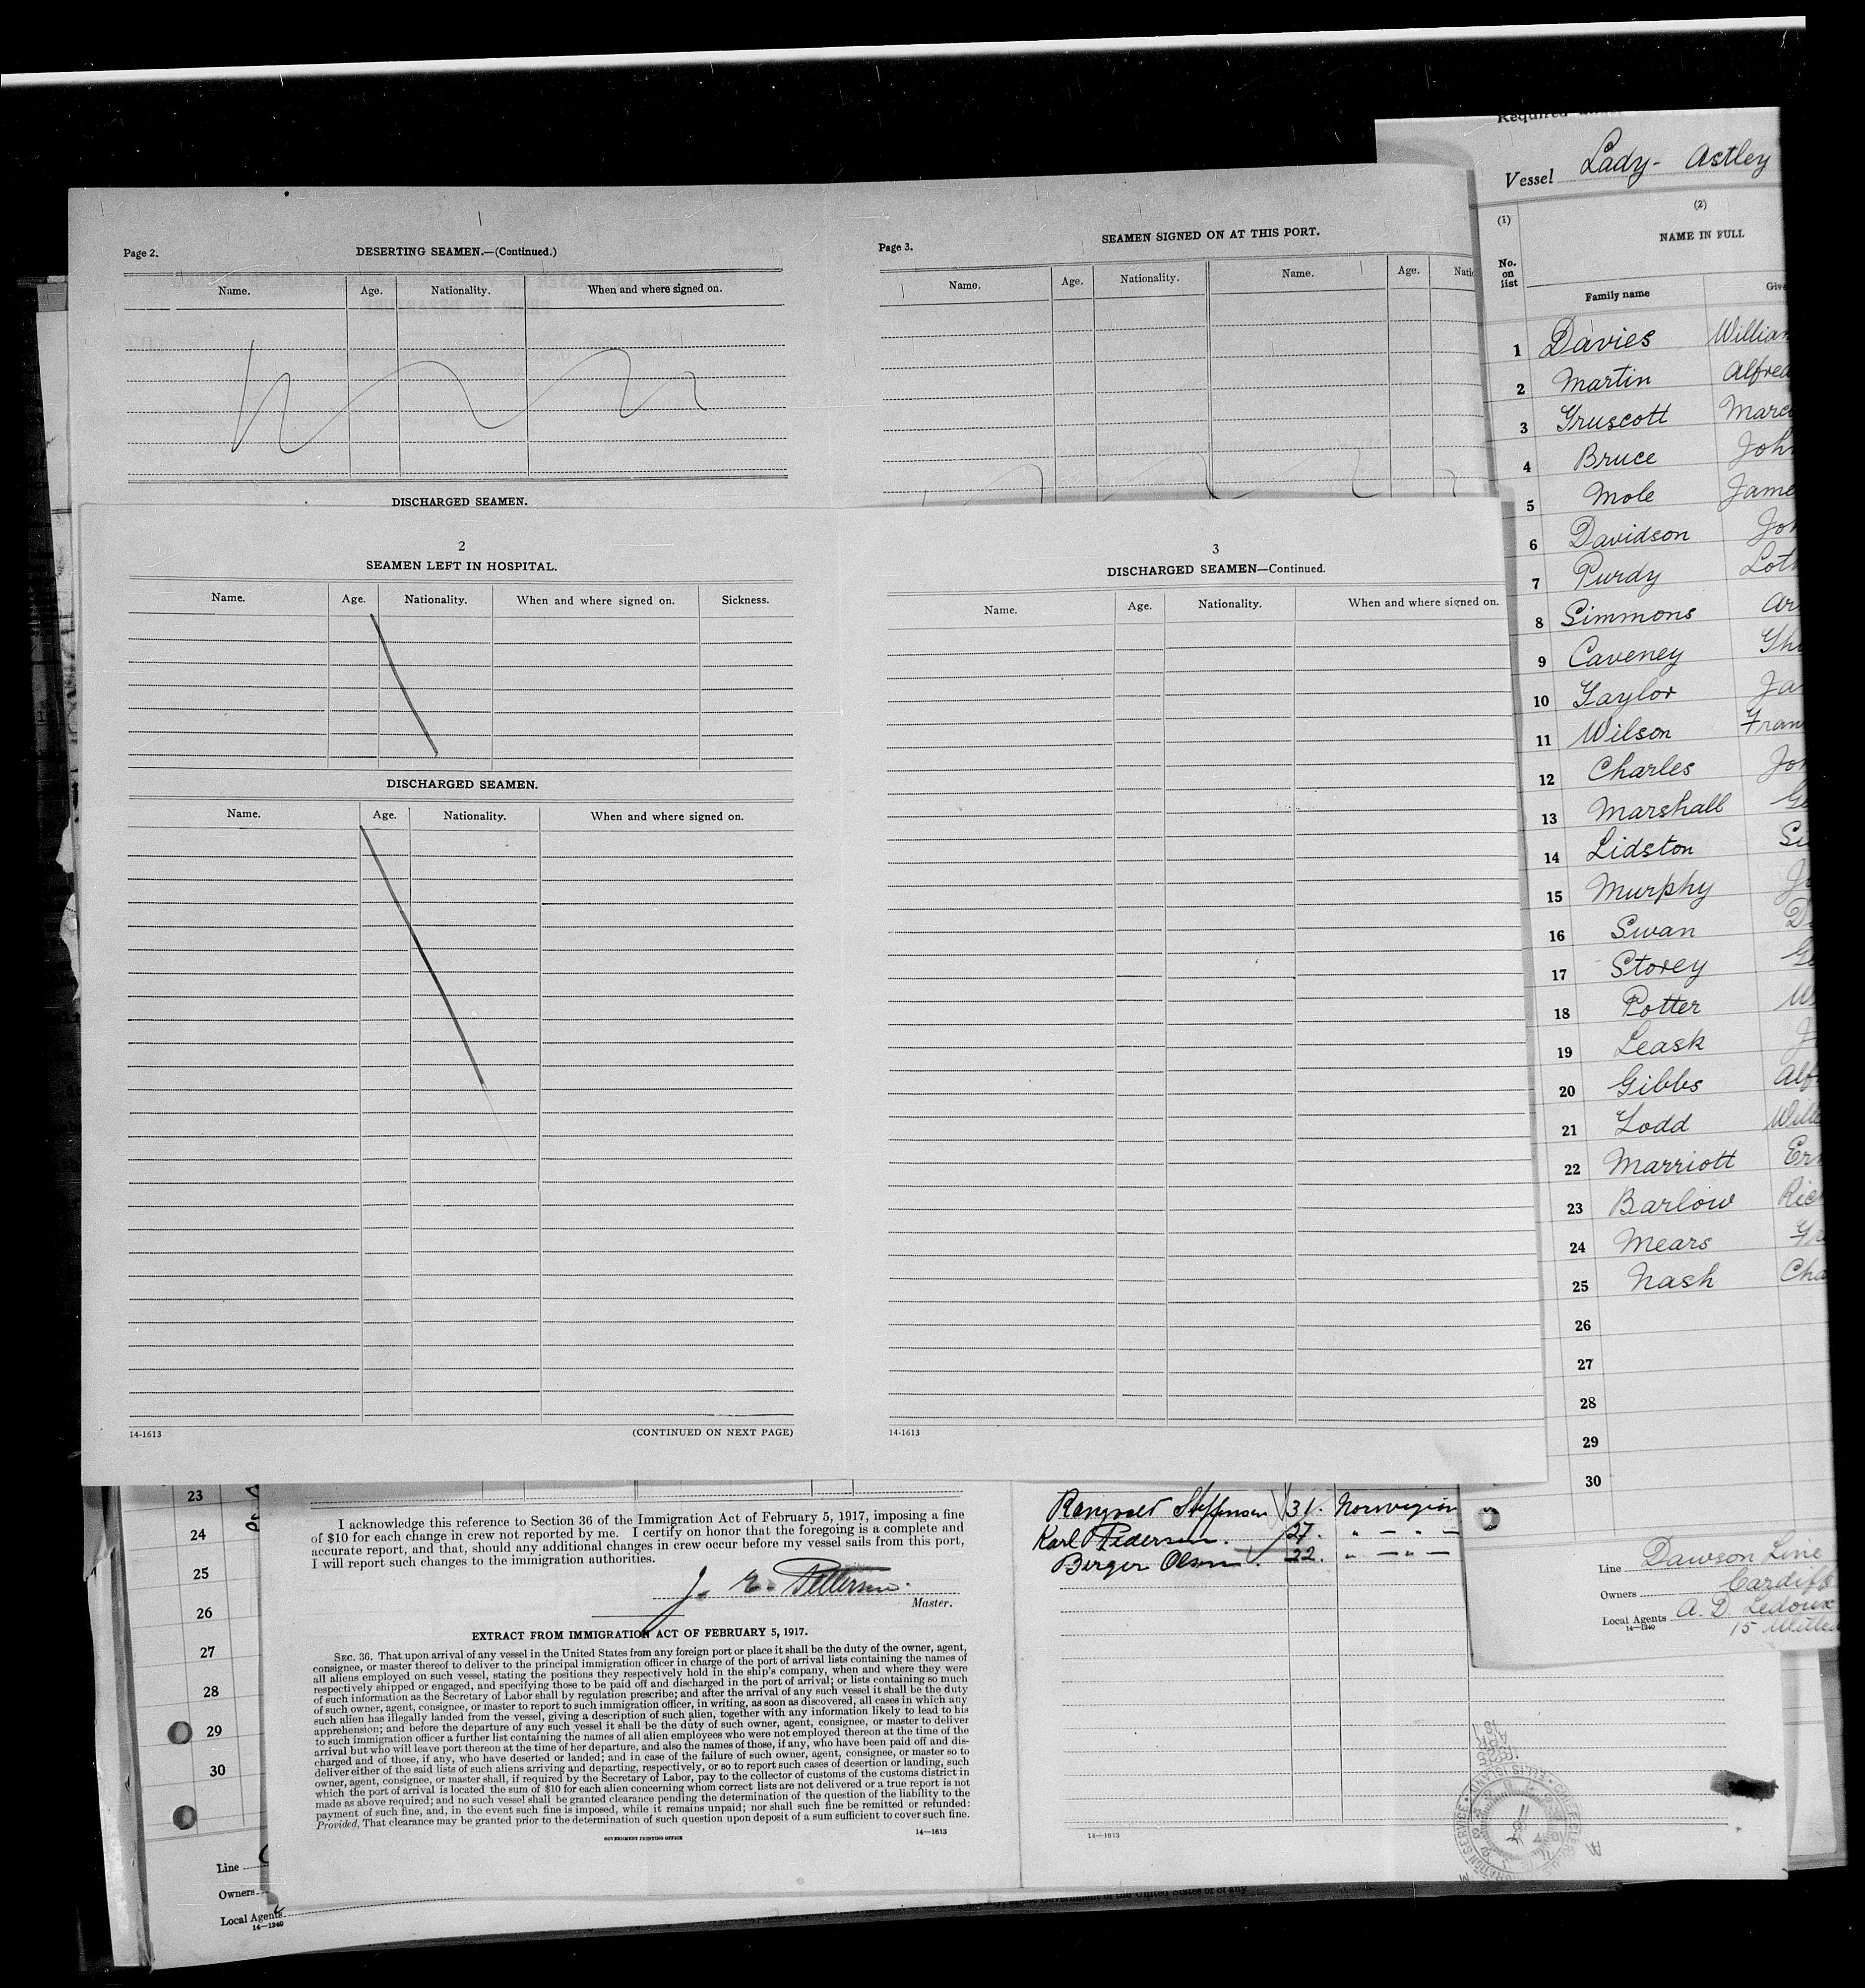 Page 2.
DESERTING SEAMEN.—(Continued.)
Name. Age. Nationality. When and where signed on.
DISCHARGED SEAMEN.
Page 3.
SEAMEN SIGNED ON AT THIS PORT.
Name. Age. Nationality. Name. Age.
2
SEAMEN LEFT IN HOSPITAL.
Name. Age. Nationality. When and where signed on. Sickness.
DISCHARGED SEAMEN.
Name. Age. Nationality. When and where signed on.
14-1613 (CONTINUED ON NEXT PAGE)
3
DISCHARGED SEAMEN—Continued.
Name. Age. Nationality. When and where signed on.
14-1613
Vessel Lady- Astley
(1) (2)
NAME IN FULL
No. on list
Family name
1 Davies William
2 Martin Alfred
3 Truscott
4 Bruce John
5 Mole Jame
6 Davidson Joh
7 Purdy Lot
8 Simmons Ar
9 Caveney Th
10 Taylor Ja
11 Wilson Fran
12 Charles Jo
13 Marshall Ge
14 Lidston
15 Murphy
16 Swan
17 Storey
18 Potter
19 Leask
20 Gibbs Alf
21 Todd Will
22 Marriott Ern
23 Barlow Ric
24 Mears
25 Nash Cha
26
27
28
29
30
Line Dawson Line
Owners Cardiff
Local Agents A. D. Ledoux
14—1240 15
23
24
25
26
27
28
29
30
Line
Owners
Local Agents
14—1240
I acknowledge this reference to Section 36 of the Immigration Act of February 5, 1917, imposing a fine
of $10 for each change in crew not reported by me. I certify on honor that the foregoing is a complete and
accurate report, and that, should any additional changes in crew occur before my vessel sails from this port,
I will report such changes to the immigration authorities.
Master.
EXTRACT FROM IMMIGRATION ACT OF FEBRUARY 5, 1917.
SEC. 36. That upon arrival of any vessel in the United States from any foreign port or place it shall be the duty of the owner, agent,
consignee, or master thereof to deliver to the principal immigration officer in charge of the port of arrival lists containing the names of
all aliens employed on such vessel, stating the positions they respectively hold in the ship's company, when and where they were
respectively shipped or engaged, and specifying those to be paid off and discharged in the port of arrival; or lists containing so much
of such information as the Secretary of Labor shall by regulation prescribe; and after the arrival of any such vessel it shall be the duty
of such owner, agent, consignee, or master to report to such immigration officer, in writing, as soon as discovered, all cases in which any
such alien has illegally landed from the vessel, giving a description of such alien, together with any information likely to lead to his
apprehension; and before the departure of any such vessel it shall be the duty of such owner, agent, consignee, or master to deliver
to such immigration officer a further list containing the names of all alien employees who were not employed thereon at the time of the
arrival but who will leave port thereon at the time of her departure, and also the names of those, if any, who have been paid off and dis-
charged and of those, if any, who have deserted or landed; and in case of the failure of such owner, agent, consignee, or master so to
deliver either of the said lists of such aliens arriving and departing, respectively, or so to report such cases of desertion or landing, such
owner, agent, consignee, or master shall, if required by the Secretary of Labor, pay to the collector of customs of the customs district in
which the port of arrival is located the sum of $10 for each alien concerning whom correct lists are not delivered or a true report is not
made as above required; and no such vessel shall be granted clearance pending the determination of the question of the liability to the
payment of such fine, and, in the event such fine is imposed, while it remains unpaid; nor shall such fine be remitted or refunded:
Provided, That clearance may be granted prior to the determination of such question upon deposit of a sum sufficient to cover such fine.
GOVERNMENT PRINTING OFFICE 14—1613
31. Norwegian
Karl Pedersen. 27. " — " —
Berger Olsen. 22. " — " —
14—1613